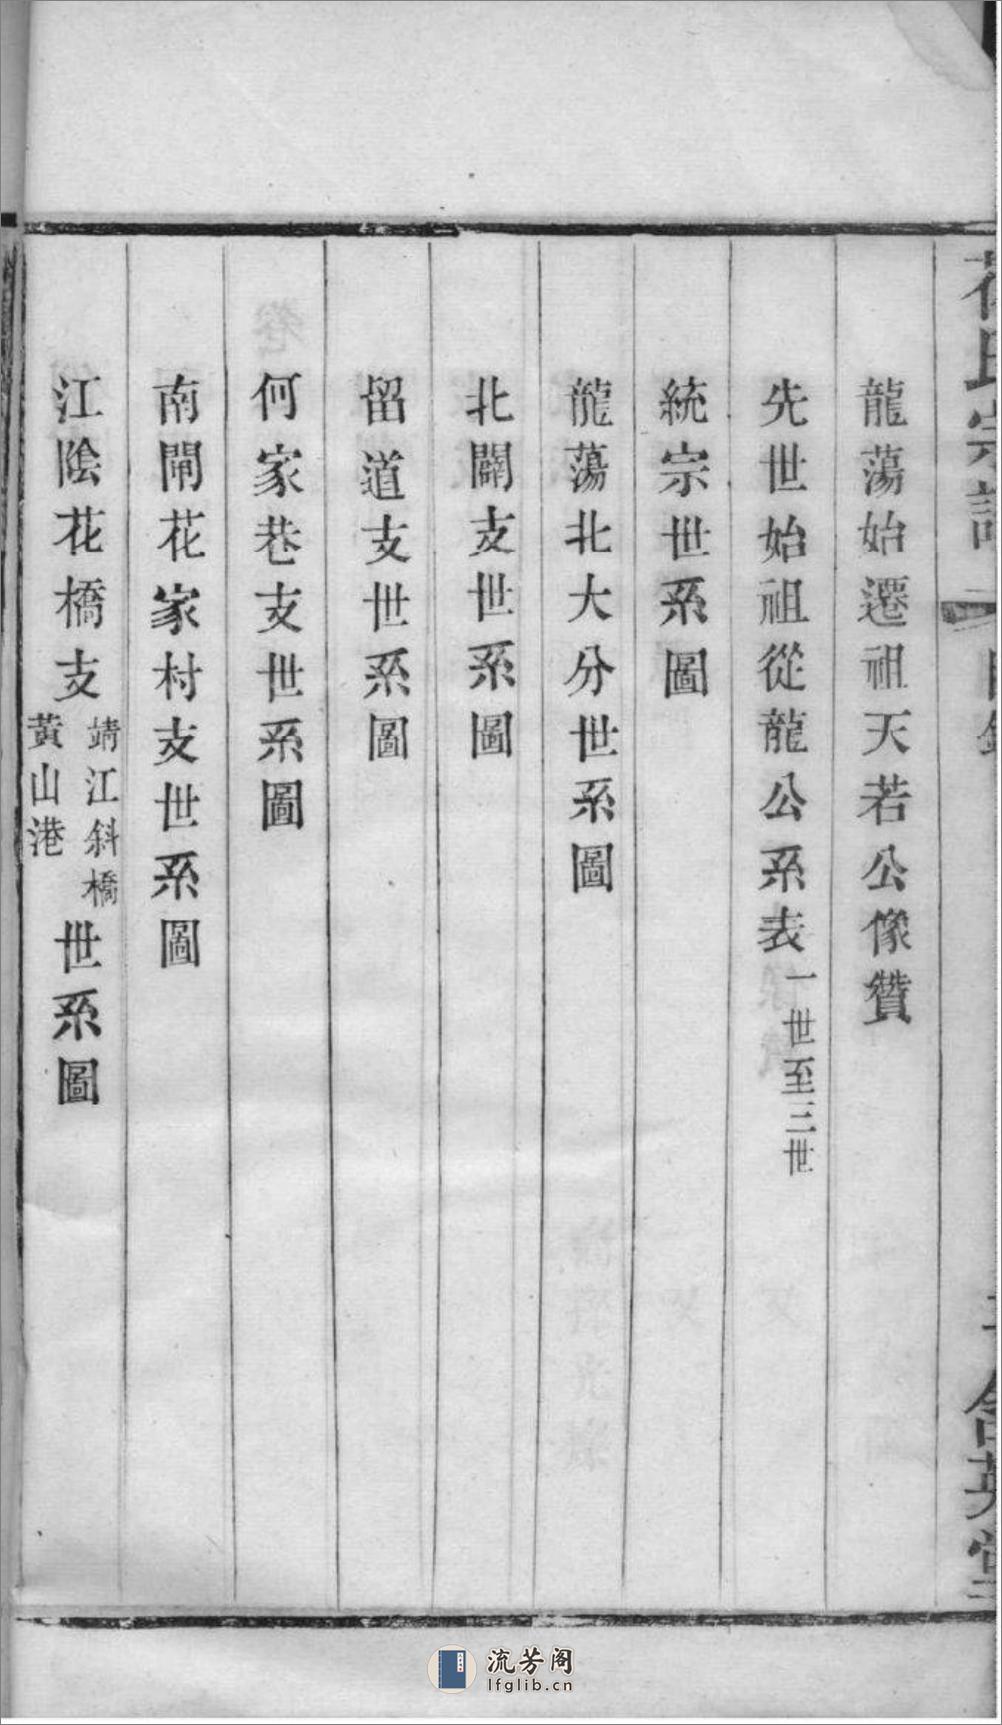 花氏宗譜
目錄
含英堂
龍蕩始遷祖天若公像贊
先世始祖從龍公系表一世至三世
統宗世系圖
龍蕩北大分世系圖
北闢支世系圖
留道支世系圖
何家巷支世系圖
南閘花家村支世系圖
江陰花橋支靖江斜橋黃山港世系圖
流芳阁
lfglib.cn